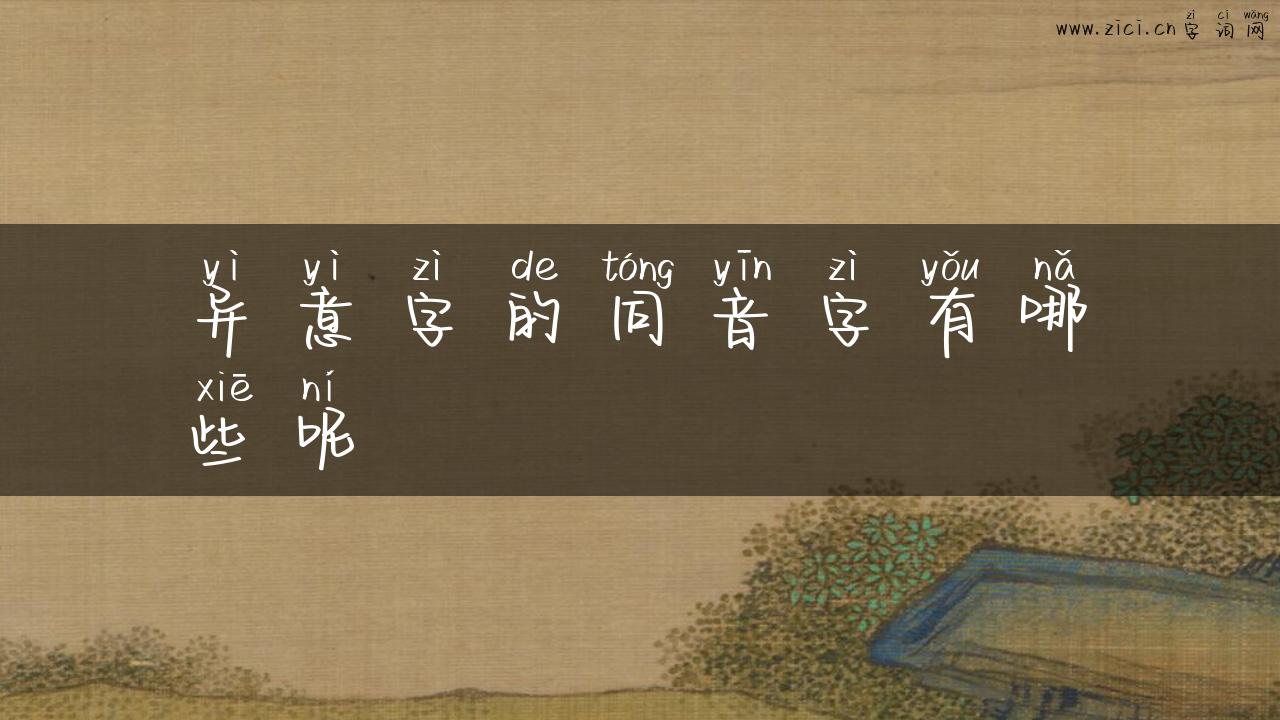 zì cí wǎng
www.zici.cn 字 词 网
yì yì zì de tóng yīn zì yǒu nǎ
异 意 字 的 同 音 字 有 哪
xiē ní
些 呢